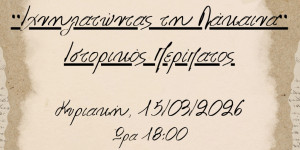 "Ιχνηλατώντας τη Λάκαινα"
Ιστορικός Περίπατος
Κυριακή, 15/03/2026
Ώρα 18:00